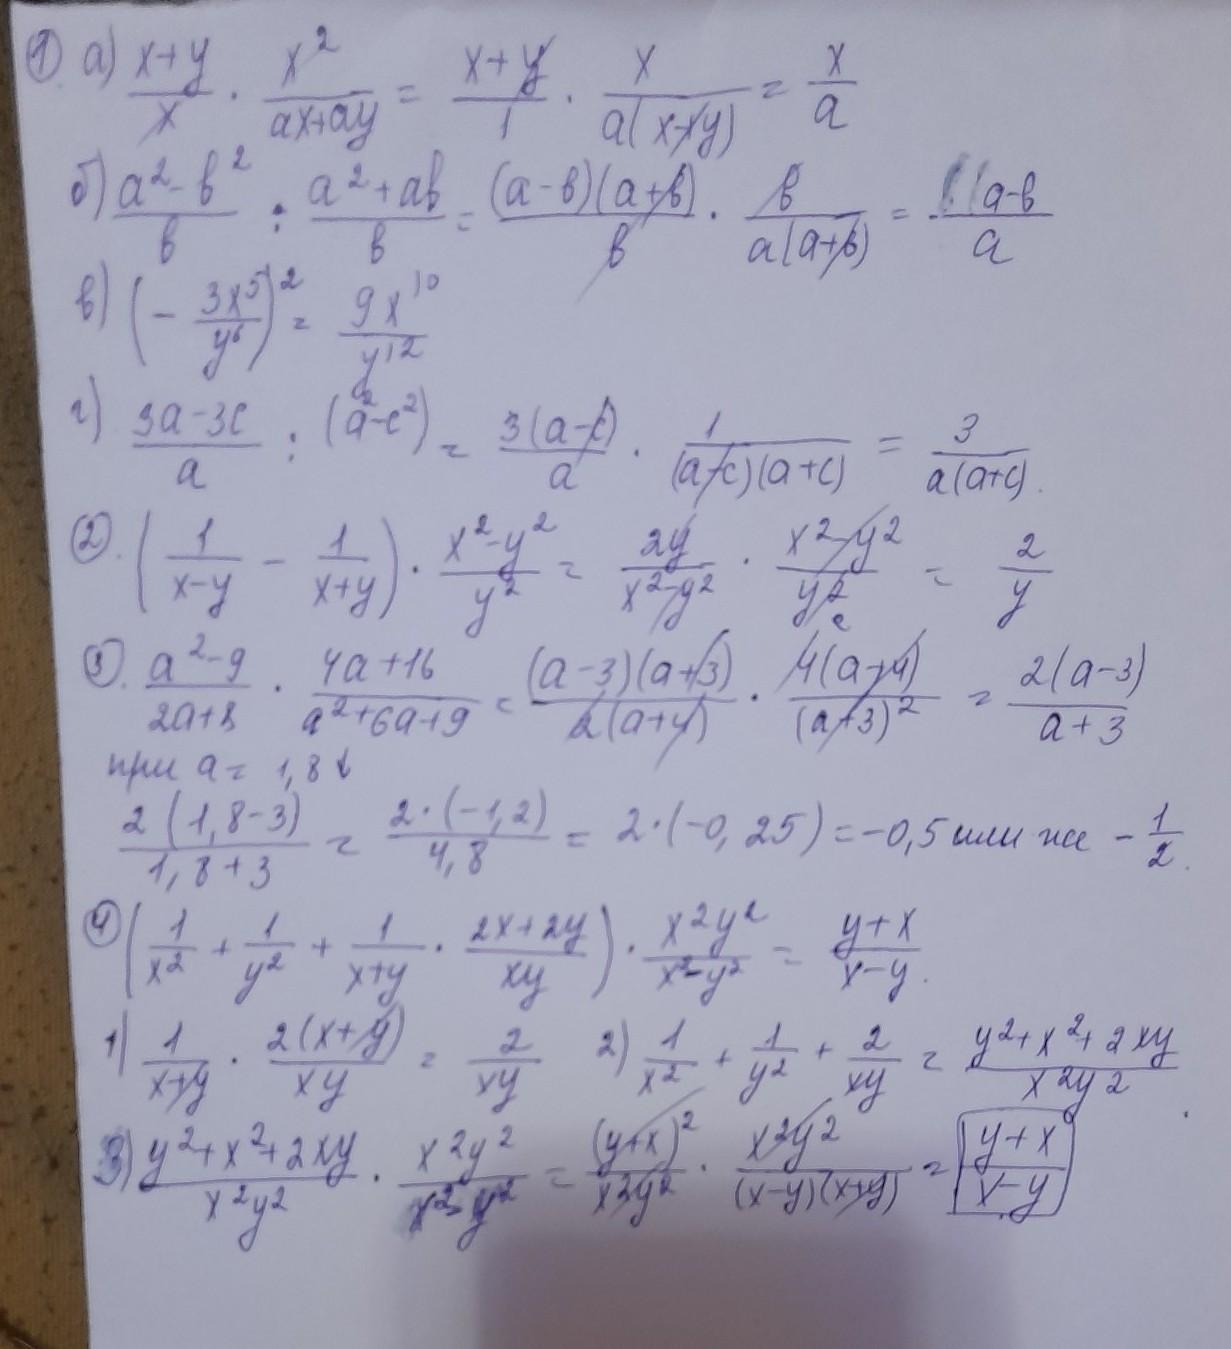 ① а) (x+y)/x · x²/(ax+ay) = (x+y)/1 · x/(a(x+y)) = x/a
б) (a²-b²)/b : (a²+ab)/b = (a-b)(a+b)/b · b/(a(a+b)) = (a-b/a
в) (- 3x⁵/y⁶)² = 9x¹⁰/y¹²
г) (3a-3c)/a : (a²-c²) = 3(a-c)/a · 1/((a-c)(a+c)) = 3/(a(a+c)).
②. (1/(x-y) - 1/(x+y)) · (x²-y²)/y² = 2y/(x²-y²) · (x²-y²)/y² = 2/y
③. (a²-9)/(2a+8) · (4a+16)/(a²+6a+9) = (a-3)(a+3)/(2(a+4)) · 4(a+4)/(a+3)² = 2(a-3)/(a+3)
при a = 1,8
2(1,8-3)/(1,8+3) = 2·(-1,2)/4,8 = 2·(-0,25) = -0,5 или же - 1/2.
④ (1/x² + 1/y² + 1/(x+y) · (2x+2y)/xy) · x²y²/(x²-y²) = (y+x)/(x-y).
1) 1/(x+y) · 2(x+y)/xy = 2/xy 2) 1/x² + 1/y² + 2/xy = (y²+x²+2xy)/x²y².
3) (y²+x²+2xy)/x²y² · x²y²/(x²-y²) = (y+x)²/x²y² · x²y²/((x-y)(x+y)) = (y+x)/(x-y)